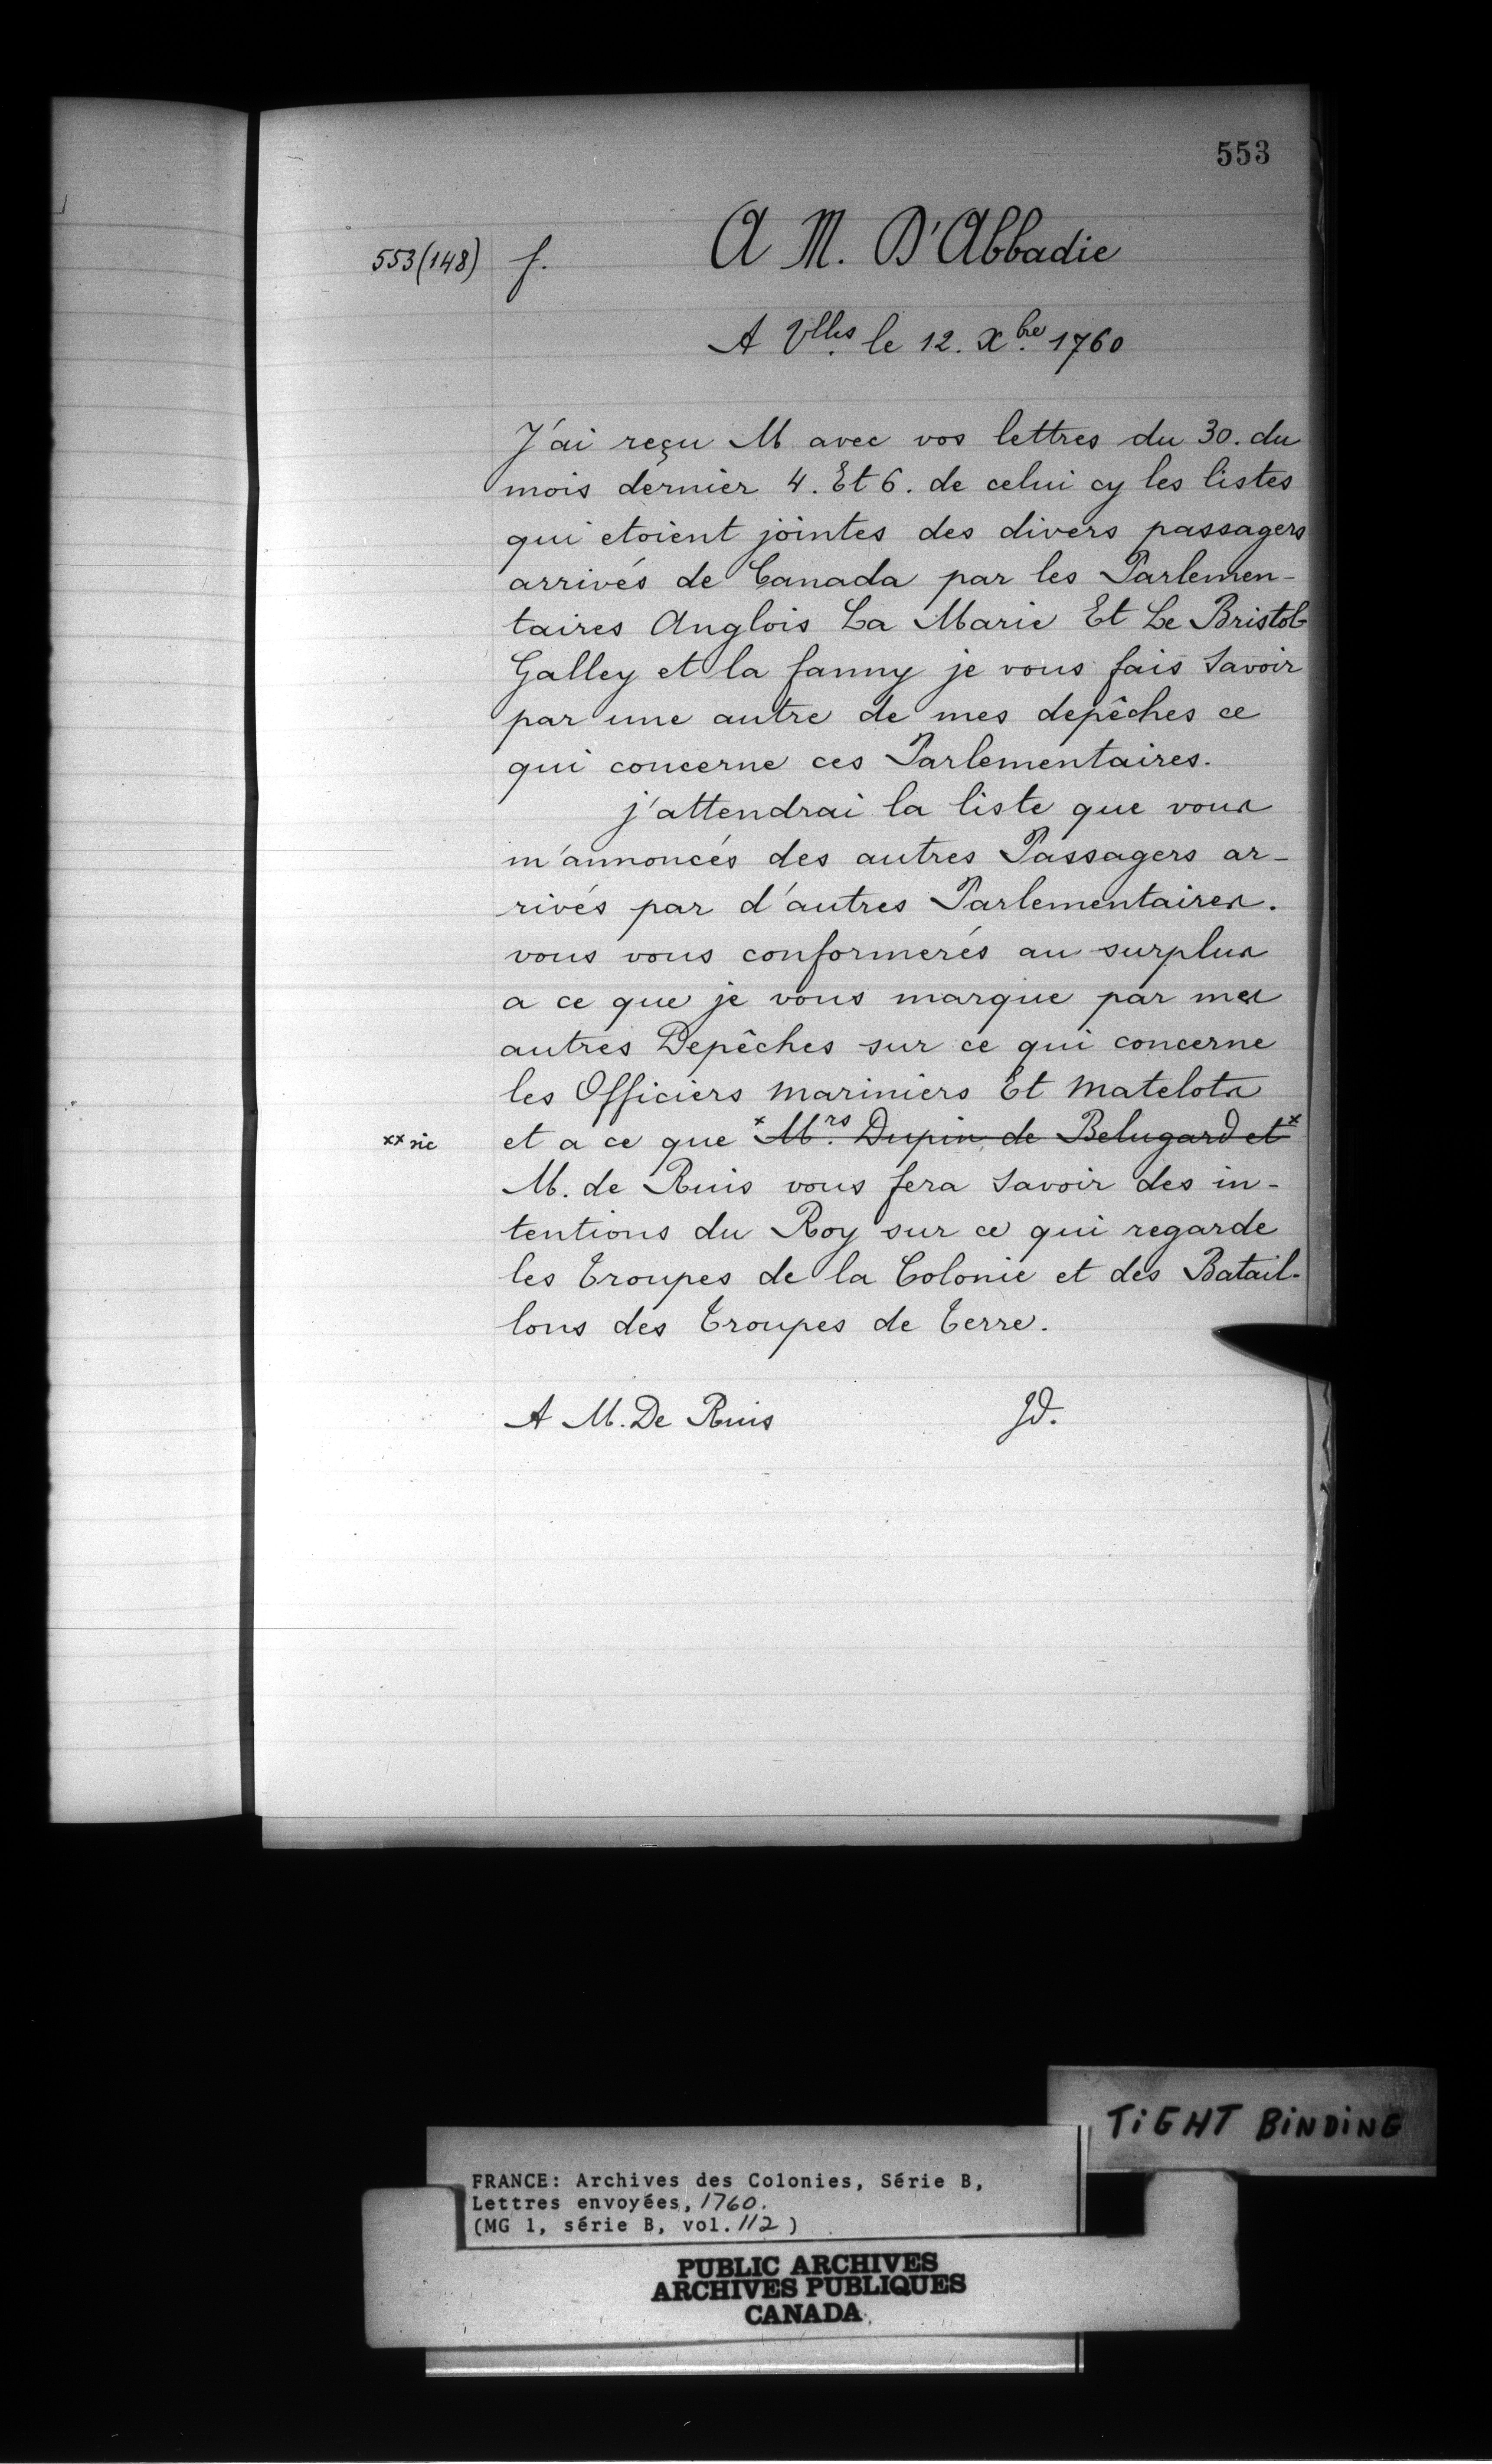 553
553(148) f. A M. D'Abbadie
A Vlles. le 12. Xbre. 1760
J'ai reçu M avec vos lettres du 30. du
mois dernier 4. Et 6. de celui cy les listes
qui etoient jointes des divers passagers
arrivés de Canada par les Parlemen-
taires Anglois La Marie Et Le Bristol
Galley et la fanny je vous fais savoir
par une autre de mes depêches ce
qui concerne ces Parlementaires.
j'attendrai la liste que vous
m'annoncés des autres Passagers ar-
rivés par d'autres Parlementaires.
vous vous conformerés au surplus
a ce que je vous marque par mes
autres Depêches sur ce qui concerne
les Officiers mariniers Et matelots
xx sic et a ce que x Mrs. Dupin de Belugard et x
M. de Ruis vous fera savoir des in-
tentions du Roy sur ce qui regarde
les Troupes de la Colonie et des Batail-
lons des Troupes de Terre.
A M. De Ruis Jd.
TIGHT BINDING
FRANCE: Archives des Colonies, Série B,
Lettres envoyées, 1760.
(MG 1, série B, vol. 112)
PUBLIC ARCHIVES
ARCHIVES PUBLIQUES
CANADA